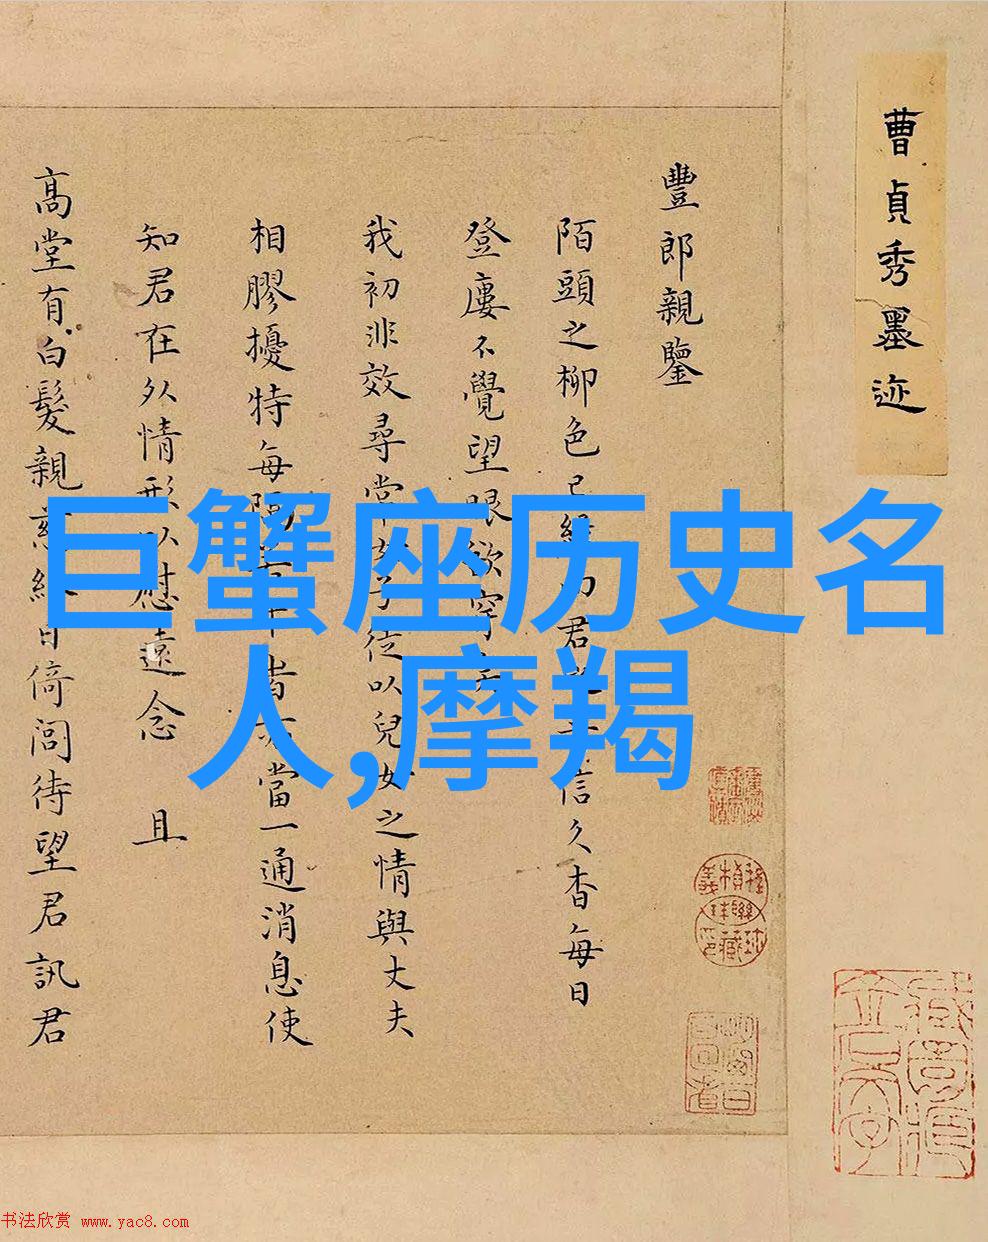 曹貞秀墨迹
豐郎親鑒
陌頭之柳色已
君
信久杳每日
登廔不覺望眼欲穿矣
我初非效尋常
徒以兒女之情與丈夫
相膠擾特每隔
者亦當一通消息使
知君在外情形以慰遠念 且
高堂有白髮親
日倚閭待望君訊君
巨蟹座历史名
人,摩羯
书法欣赏 www.yac8.com